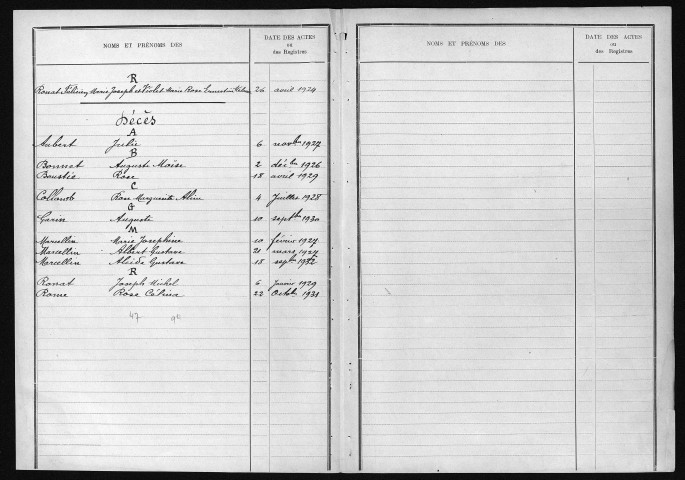 NOMS ET PRÉNOMS DES
DATE DES ACTES
ou
des Registres
R
Ronat Marie Joseph et Violet Marie Rose 26 avril 1924
Décès
A
Aubert Julie 6 novbre 1927
B
Bonnet Auguste Moïse 2 décbre 1926
Rose 18 avril 1929
C
Collomb Rose Marguerite 4 Juillet 1928
G
Garin Auguste 10 septbre 1930
M
Marcellin Marie Josephine 10 février 1927
Marcellin Albert Gustave 21 mars 1927
Marcellin Gustave 18 septbre
R
Ronat Joseph Michel 6 Janvier 1929
Rome Rose 22 Octobre 1931
47
NOMS ET PRÉNOMS DES
DATE DES ACTES
ou
des Registres